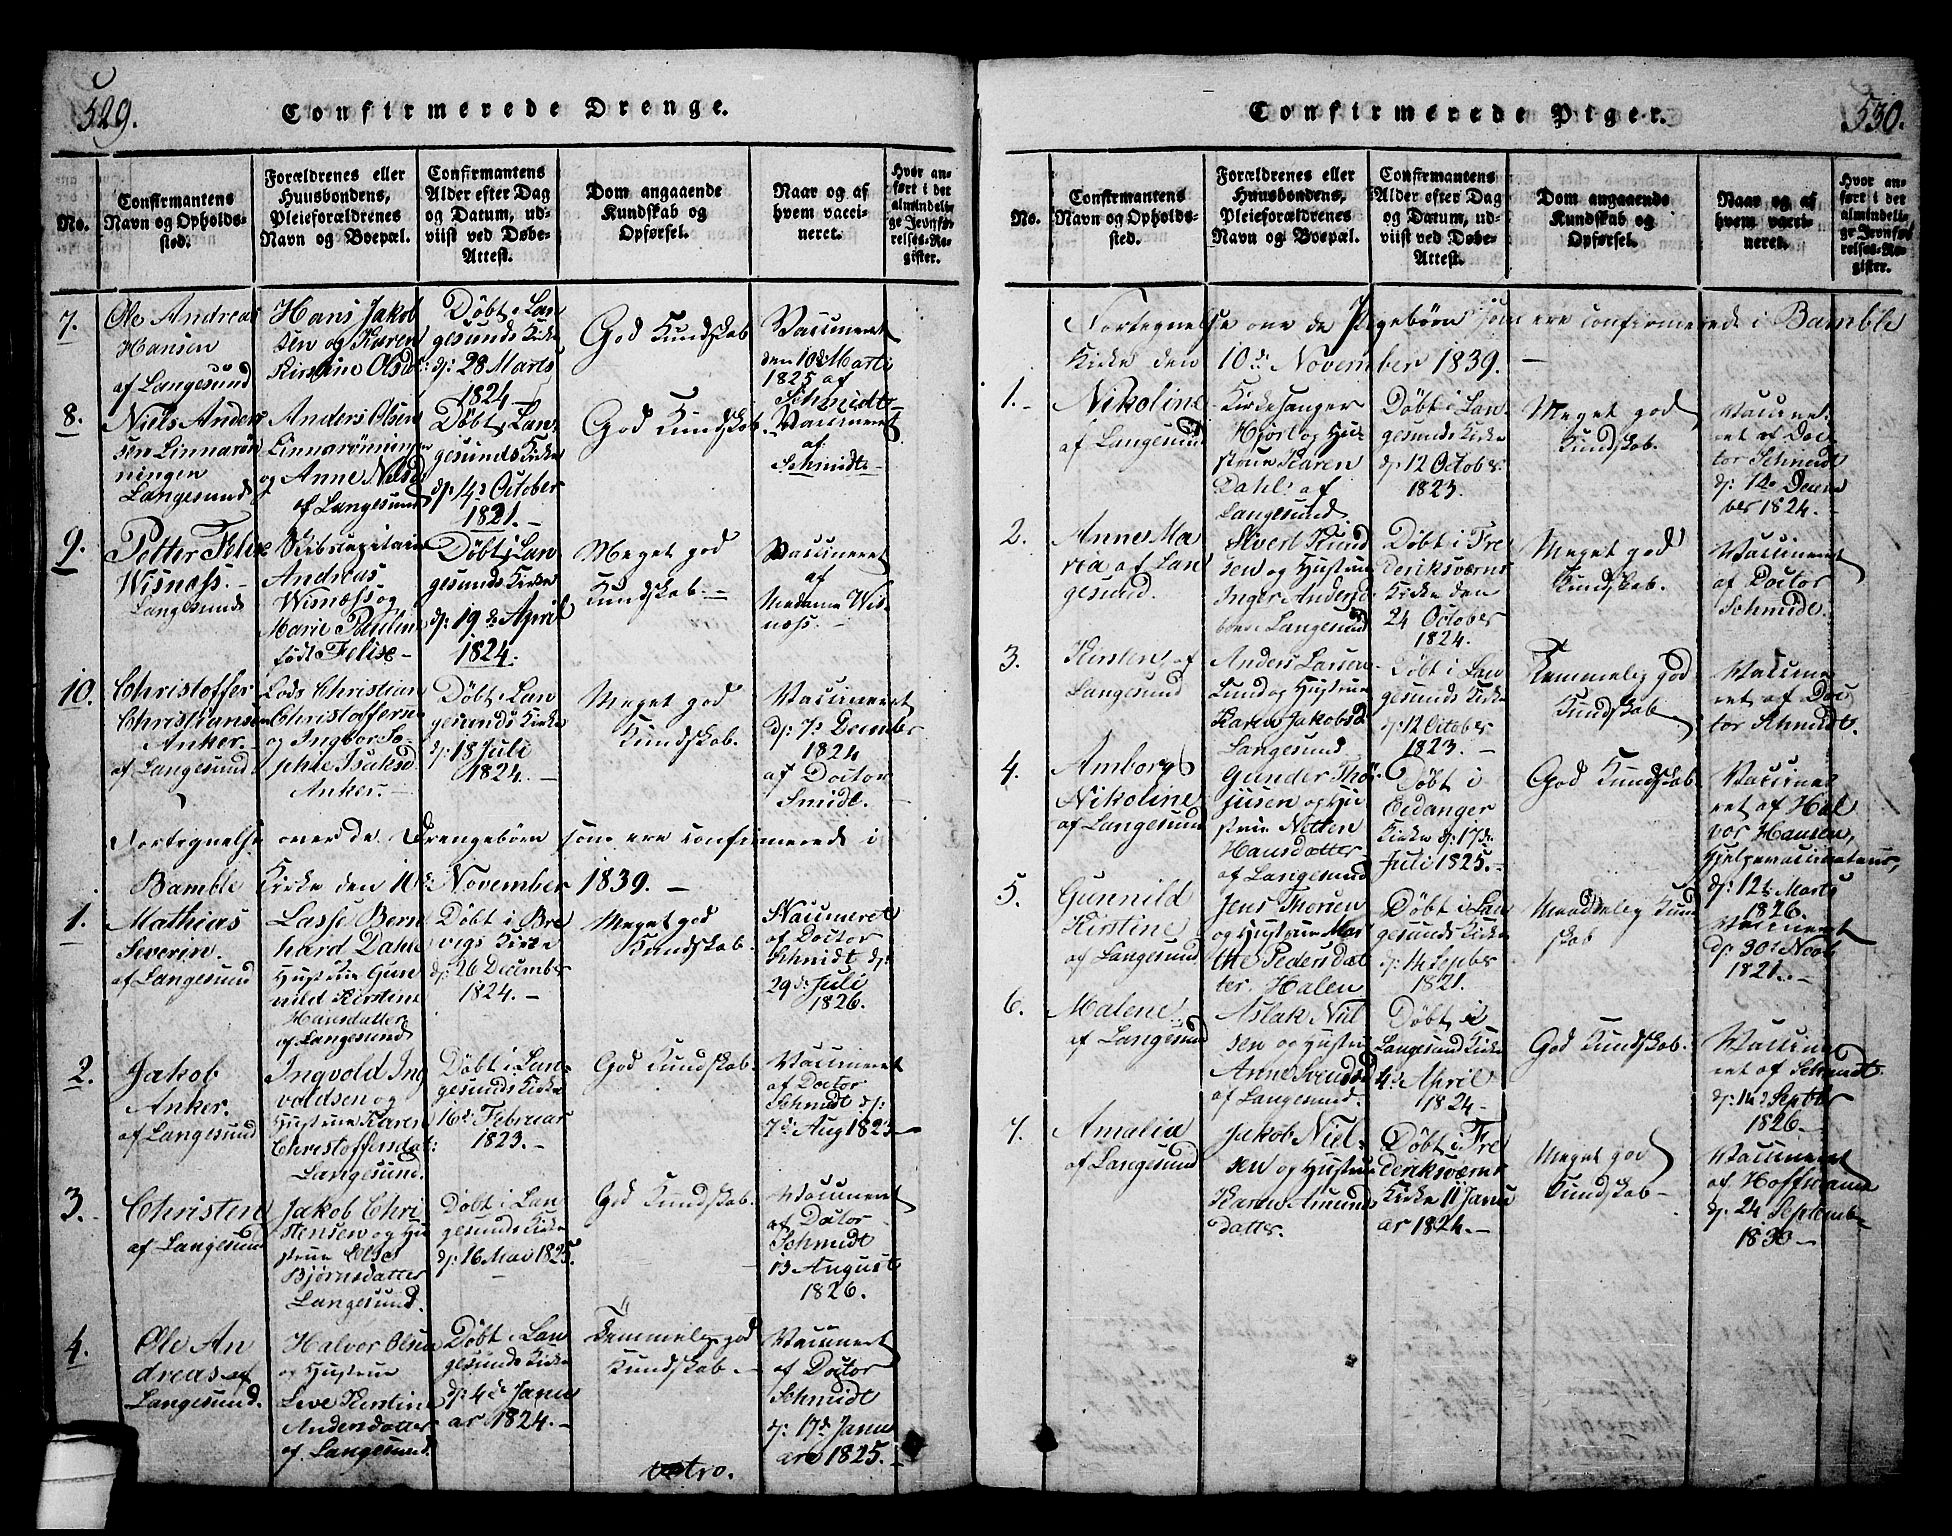 529.
Confirmerede Drenge.
No.
Confirmantens
Navn og Opholds-
sted.
Forældrenes eller
Huusbondens,
Pleieforældrenes
Navn og Boepæl.
Confirmantens
Alder efter Dag
og Datum, ud-
viist ved Døbe-
Attest.
Dom angaaende
Kundskab og
Opførsel.
Naar og af
hvem vacci-
neret.
Hvor an-
ført i det
almindeli-
ge Jevnfø-
relses-Re-
gister.
7.
Ole Andreas
Hansen
af Langesund
Hans Jakob
sen og Karen
Kirstine Olsd:
Døbt i Lan
gesunds Kirke
d: 28 Marts
1824 –
God Kundskab
Vaccineret
den 10d Marti
1825 af
Schmidt
8.
Niels Anders
sen Linnarön
ningen
Langesund
Anders Olsen
Linnarönningen
og Anne Nilsd
af Langesund
Døbt i Lan
gesunds Kirke
d: 14d October
1821. –
God Kundskab.
Vaccineret
af
Schmidt –
9.
Petter Felix
Wisnæss. –
Langesund
Skibscapitain
Andreas
Wisnæss og
Marie Pauline
født Felix –
Døbt i Lan
gesunds Kirke
d: 19de April
1824.
Meget god
Kundskab. –
Vaccineret
af
Madame Wis
næss. –
10.
Christoffer
Christiansen
Anker. –
af Langesund
Lods Christian
Christoffersen
og Ingbor So
phie Isaksd.
Anker. –
Døbt i Lan
gesunds Kirke
d: 18 Juli
1824. –
Meget god
Kundskab.
Vaccineret
d: 7d December
1824
af Doctor
Smidt. –
Fortegnelse over de Drengebörn som ere confirmerede i
Bamble Kirke den 10d: November 1839. –
1.
Mathias
Severin.
af Langesund
Lasse Bern
hard Dahl
Hustrue Gun
nild Kirstine
Hansdatter
af Langesund
Døbt i Bre
vigs Kirke
d: 26 December
1824. –
Meget god
Kundskab.
Vaccineret
af Doctor
Schmidt d:
29d Juli
1826.
2.
Jakob
Anker.
af Langesund
Ingvold Ing
valdsen og
Hustrue Karen
Christoffersdat:
Langesund.
Døbt i Lan-
gesunds Kirke
16d: Februar
1823. –
God Kundskab.
Vaccineret
af Doctor
Schmidt d:
7d: Aug 1823 –
3.
Christen
af Langesund
Jakob Chri
stensen og Hu
strue Else
Bjørnsdatter
Langesund.
Døbt i Lan
gesunds Kirke
d: 16 Mai 1825.
God Kundskab.
Vaccineret
af Doctor
Schmidt
13 August
1826.
4.
Ole An
dreas af
Langesund.
Halvor Olsen
og Hustrue
Live Kirstine
Andersdatter
af Langesund.
Døbt i Lan
gesunds Kirke
d: 4d: Janu
ar 1824. –
Temmelig god
Kundskab. –
Vaccineret
af Doctor
Schmidt
d: 17d. Janu
ar 1825. –
vetro.
530.
Confirmerede Piger.
No.
Confirmantens
Navn og Opholds-
sted.
Forældrenes eller
Huusbondens,
Pleieforældrenes
Navn og Boepæl.
Confirmantens
Alder efter Dag
og Datum, ud-
viist ved Døbe-
Attest.
Dom angaaende
Kundskab og
Opførsel.
Naar og af
hvem vacci-
neret.
Hvor an-
ført i det
almindeli-
ge Jevnfø-
relses-Re-
gister.
Fortegnelse ove de Pigebörn som ere confirmerede i Bamble
Kirke den 10d: November 1839. –
1.
Nikoline
af Langesund
Kirkesanger
Hjort og Hu
strue Karen
Dahl: af
Langesund
Døbt i Lan
gesunds Kirke
d: 12 October
1823.
Meget god
Kundskab.
Vaccine
ret af Doc
tor Schmidt
d: 14 Decem
ber 1824. –
2.
Anne Ma
ria af Lan
gesund.
Sivert Knud
sen og Hustrue
Inger Anders
Langesund
Døbt i Fre
deriksværns
Kirke den
24 October
1824.
Meget god
Kundskab.
Vaccineret
af Doctor
Schmidt.
3.
Kirsten af
Langesund
Anders Larsen
Lund og Hustrue
Karen Jakobsd
Langesund
Døbt i Lan
gesunds Kirke
d: 12 October
1823. –
Temmelig god
Kundskab
Vaccine
ret af Doc
tor Schmidt.
4.
Amborg
Nikoline
af Langesund
Gunder Thör
gusen og Hu
strue Netten
Hansdatter
af Langesund
Døbt i
Eidanger
Kirke d: 17de
Juli 1825. –
God Kundskab.
Vaccine
ret af Hal
vor Hansen,
Hjelpevaccinateur,
d: 12t. Marts
1826.
5.
Gunnild
Kirstine
af Langesund
Jens Thorsen
og Hustrue Mar
the Pedersdat
ter. Halen
Døbt i Lan
gesunds Kirke
d: 14 Septber
1821.
Maadelig Kund
skab
Vaccineret
d: 30t Novb
1821. –
6.
Malene
af Langesund
Aslak Niel
sen og Hustru
Anne Svendsd
af Langesund.
Døbt i
Langesund Kirke
4d April
1824 –
God Kundskab.
Vaccine
ret af Schmidt
d: 14d Septbr
1826. –
7.
Amalia
af Langesund
Jakob Niel-
sen og Hustrue
Karen Amund
datter.
Døbt i Fre
deriksværns
Kirke 11 Janu
ar 1824. –
Meget god
Kundskab –
Vaccineret
af Hoffmann
d: 24 Septemb
1830 –